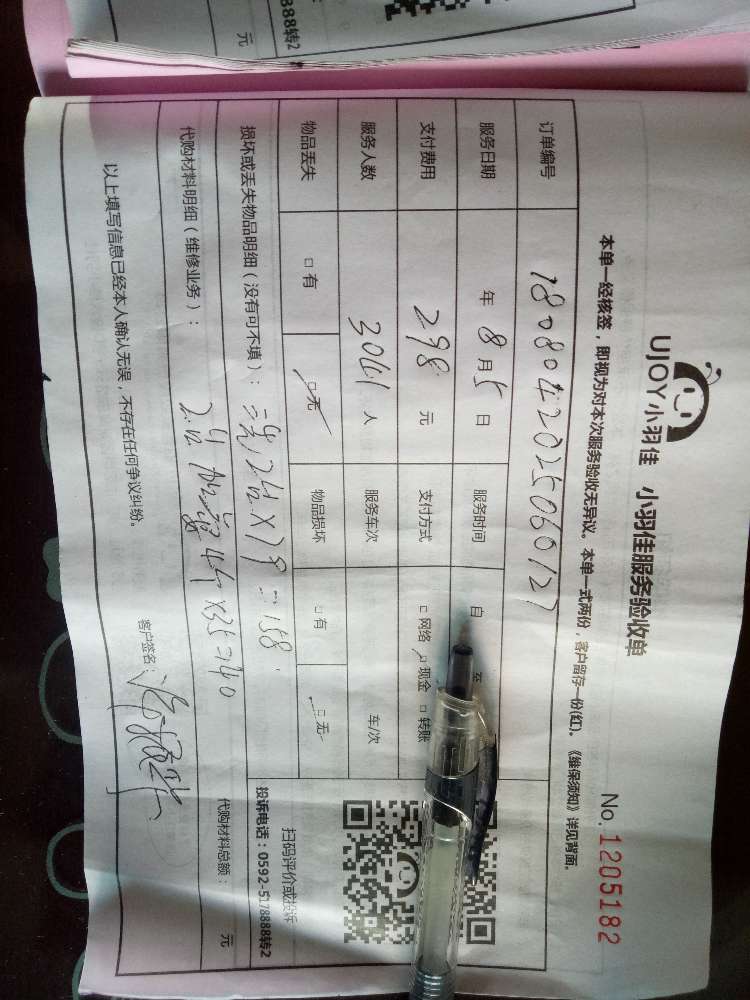 888转2
元
UJOY小羽佳 小羽佳服务验收单
No. 1205182
本单一经核签，即视为对本次服务验收无异议。本单一式两份，客户留存一份(红)。《维保须知》详见背面。
订单编号 180804202506012
服务日期 年 8 月 5 日 服务时间 自 至
支付费用 298 元 支付方式 □ 网络 □ 现金 □ 转账
服务人数 人 服务车次 车/次
物品丢失 □ 有 □ 无 物品损坏 □ 有 □ 无
损坏或丢失物品明细（没有可不填）： 2台X79=158
代购材料明细（维修业务）： 2台 X35=140
代购材料总额： 元
扫码评价或投诉
投诉电话：0592-5178888转2
以上填写信息已经本人确认无误，不存在任何争议纠纷。
客户签名：